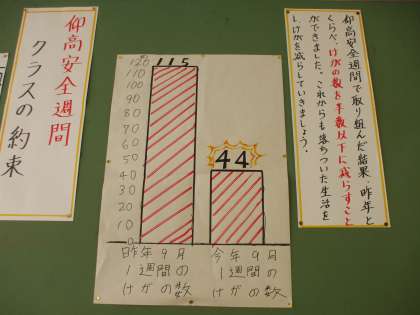 仰高安全週間で取り組んだ結果、昨年と
くらべ、けがの数を半数以下に減らすこと
ができました。これからも落ちついた生活を
し、けがを減らしていきましょう。
120
110
100
90
80
70
60
50
40
30
20
10
0
115
44
昨年9月
1週間の
けがの数
今年9月
1週間の
けがの数
仰高安全週間
クラスの約束